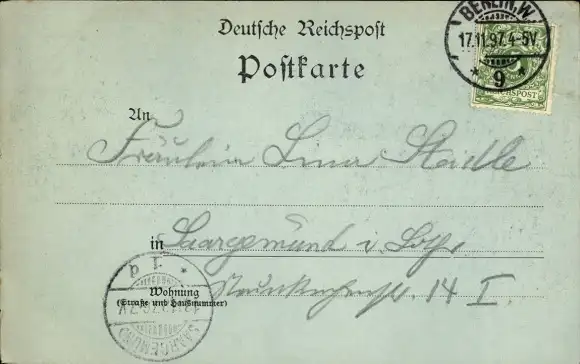 BERLIN.W.
17.11.97.4-5V.
* 9 *
REICHSPOST
Deutsche Reichspost
Postkarte
An
Fräulein Lina
in Saargemünd i. Loth.
Wohnung
(Straße und Hausnummer)
14 I.
SAARGEMÜND